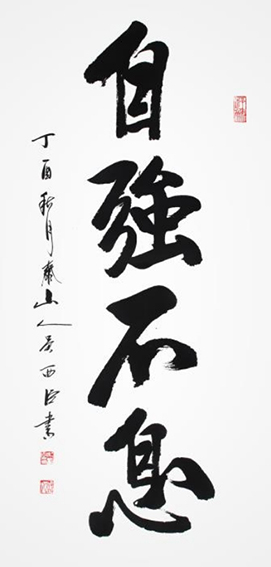 自強不息
丁酉秋月泰山人吴西臣書